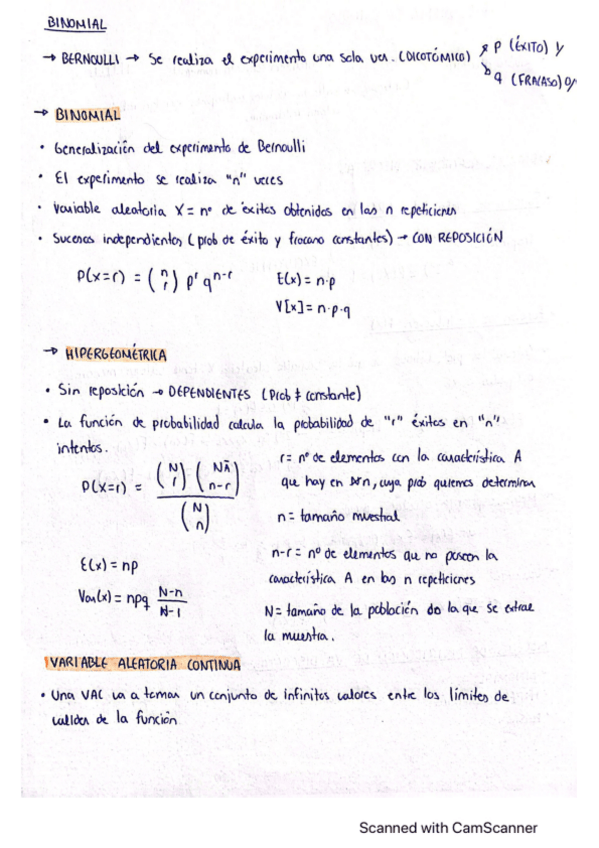 BINOMIAL
→ BERNOULLI → Se realiza el experimento una sola vez. (DICOTÓMICO) P (ÉXITO) y
q (FRACASO) o/
→ BINOMIAL
• Generalización del experimento de Bernoulli
• El experimento se realiza "n" veces
• Variable aleatoria X = nº de éxitos obtenidos en las n repeticiones
• Sucesos independientes (prob de éxito y fracaso constantes) → CON REPOSICIÓN
P(x=r) = (n r) p^r q^n-r E(x) = n·p
V[x] = n·p·q
→ HIPERGEOMÉTRICA
• Sin reposición → DEPENDIENTES (Prob ≠ constante)
• La función de probabilidad calcula la probabilidad de "r" éxitos en "n"
intentos.
r = nº de elementos con la característica A
P(x=r) = (N r) (NĀ n-r) / (N n)
que hay en n, cuya prob queremos determinar
n = tamaño muestral
n-r = nº de elementos que no poseen la
E(x) = np
característica A en las n repeticiones
Var(x) = npq N-n / N-1
N = tamaño de la población de la que se extrae
la muestra.
VARIABLE ALEATORIA CONTINUA
• Una VAC va a tomar un conjunto de infinitos valores entre los límites de
validez de la función
Scanned with CamScanner